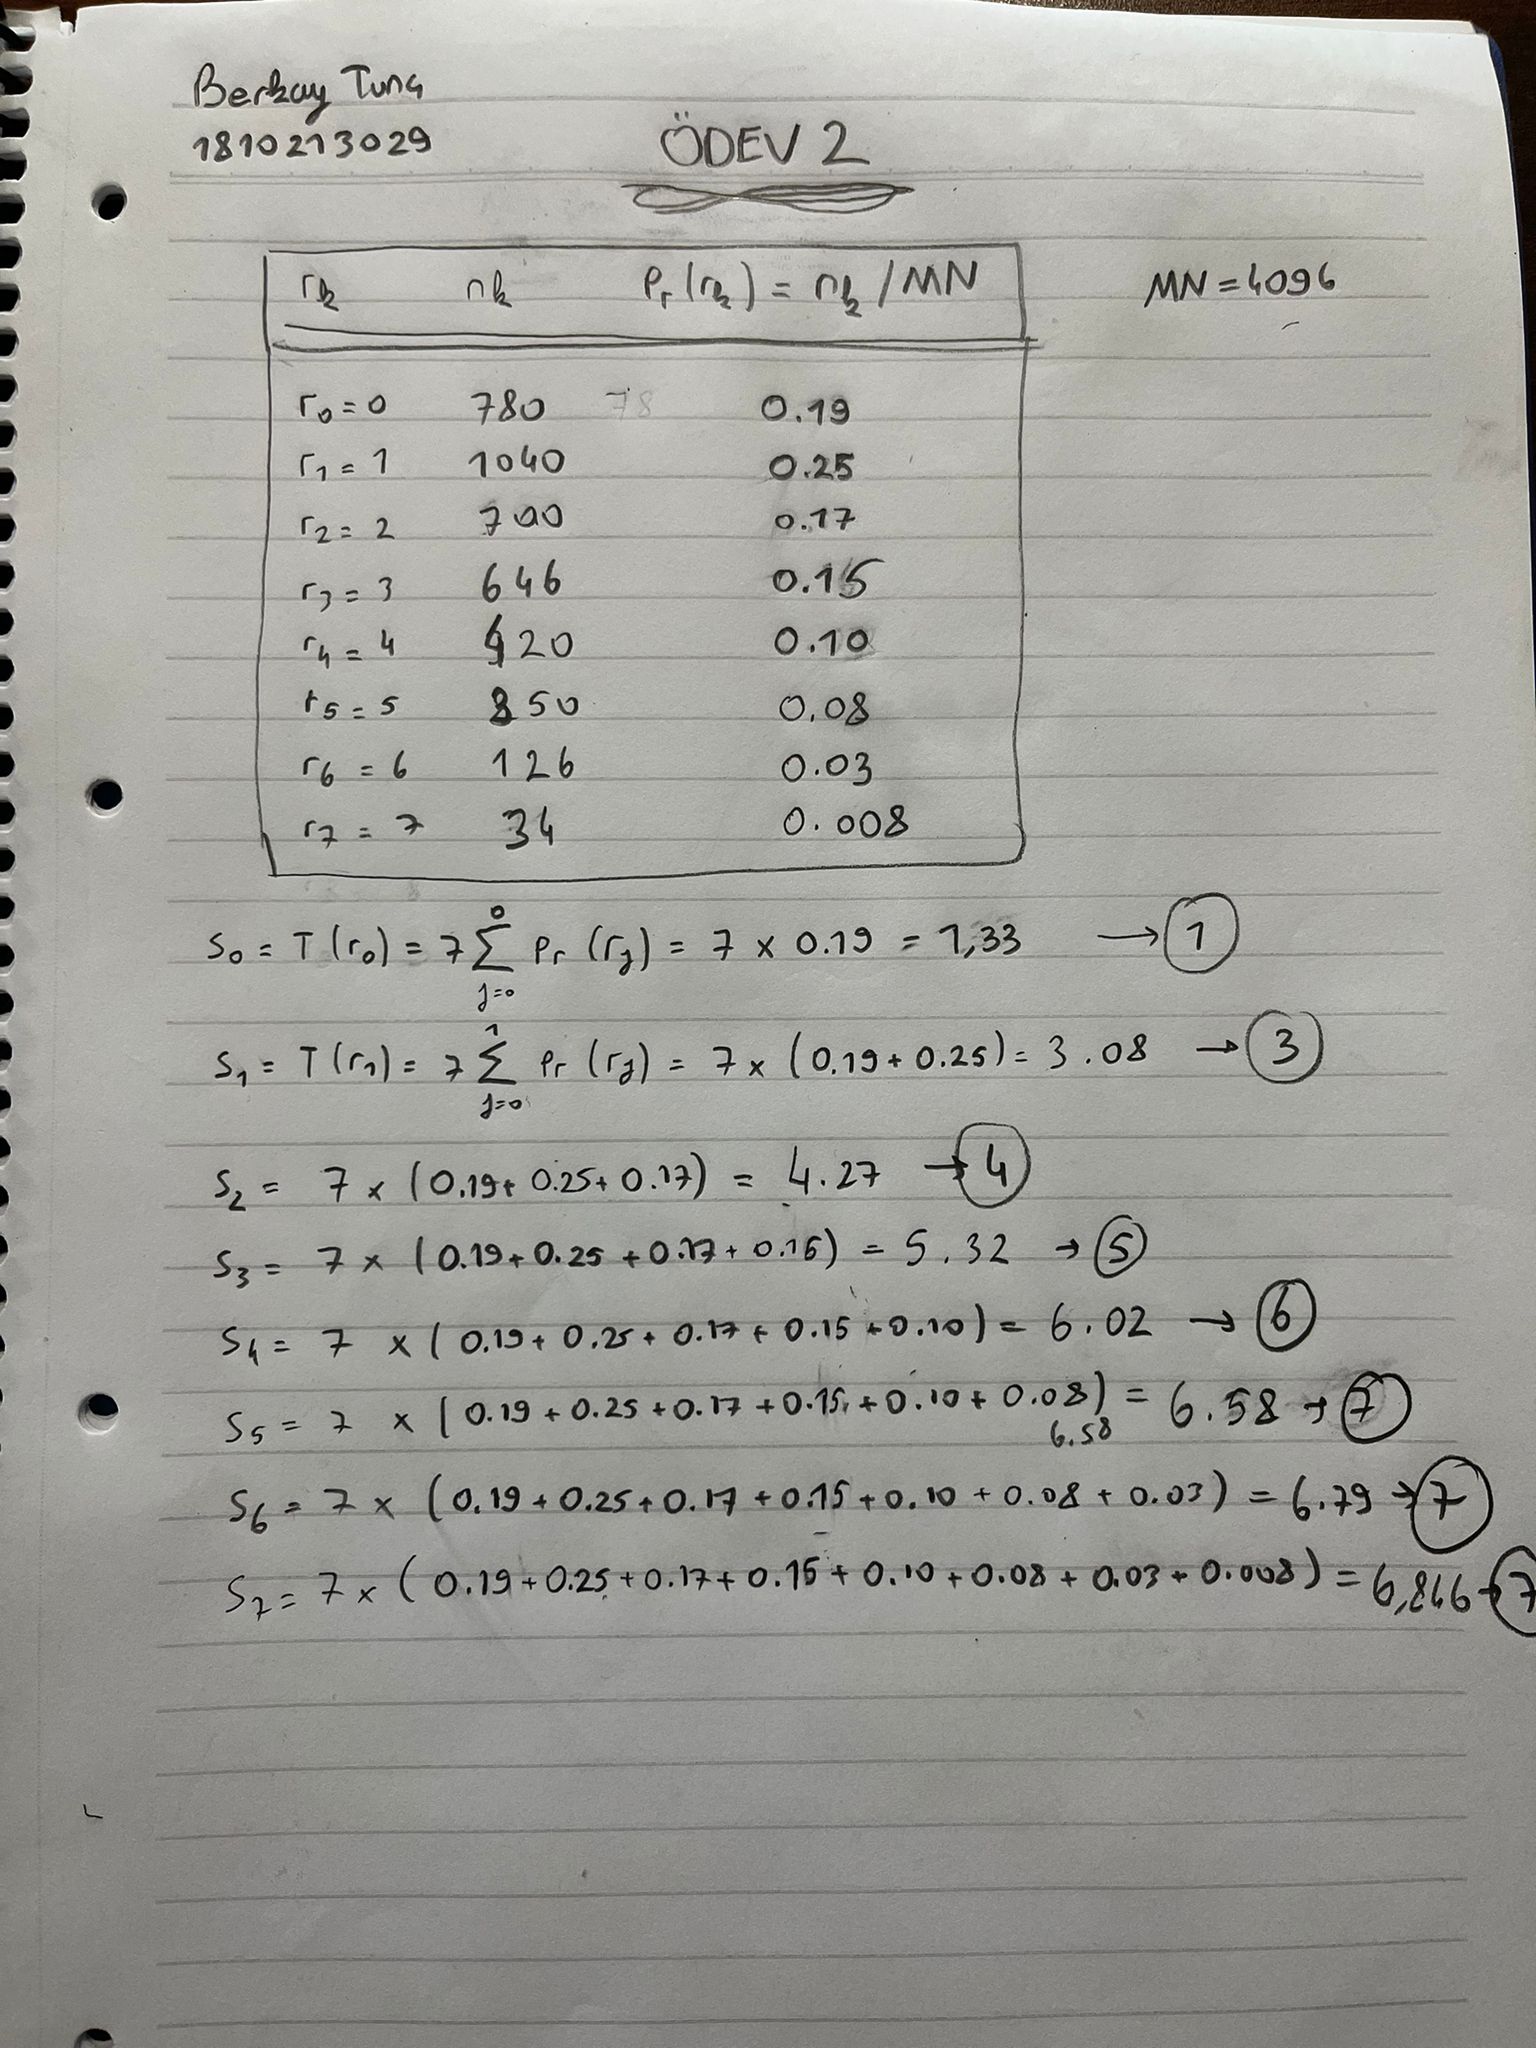 Berkay Tuna
1810213029
ÖDEV 2
rk nk Pr(rk) = nk/MN MN = 4096
r0 = 0 780 78 0.19
r1 = 1 1040 0.25
r2 = 2 700 0.17
r3 = 3 646 0.15
r4 = 4 420 0.10
r5 = 5 350 0.08
r6 = 6 126 0.03
r7 = 7 34 0.008
S0 = T(r0) = 7 0∑j=0 Pr(rj) = 7 x 0.19 = 1,33 → 1
S1 = T(r1) = 7 1∑j=0 Pr(rj) = 7 x (0.19 + 0.25) = 3.08 → 3
S2 = 7 x (0.19 + 0.25 + 0.17) = 4.27 → 4
S3 = 7 x (0.19 + 0.25 + 0.17 + 0.15) = 5.32 → 5
S4 = 7 x (0.19 + 0.25 + 0.17 + 0.15 + 0.10) = 6.02 → 6
S5 = 7 x (0.19 + 0.25 + 0.17 + 0.15 + 0.10 + 0.08) = 6.58 → 7
6.58
S6 = 7 x (0.19 + 0.25 + 0.17 + 0.15 + 0.10 + 0.08 + 0.03) = 6.79 → 7
S7 = 7 x (0.19 + 0.25 + 0.17 + 0.15 + 0.10 + 0.08 + 0.03 + 0.008) = 6,846 → 7